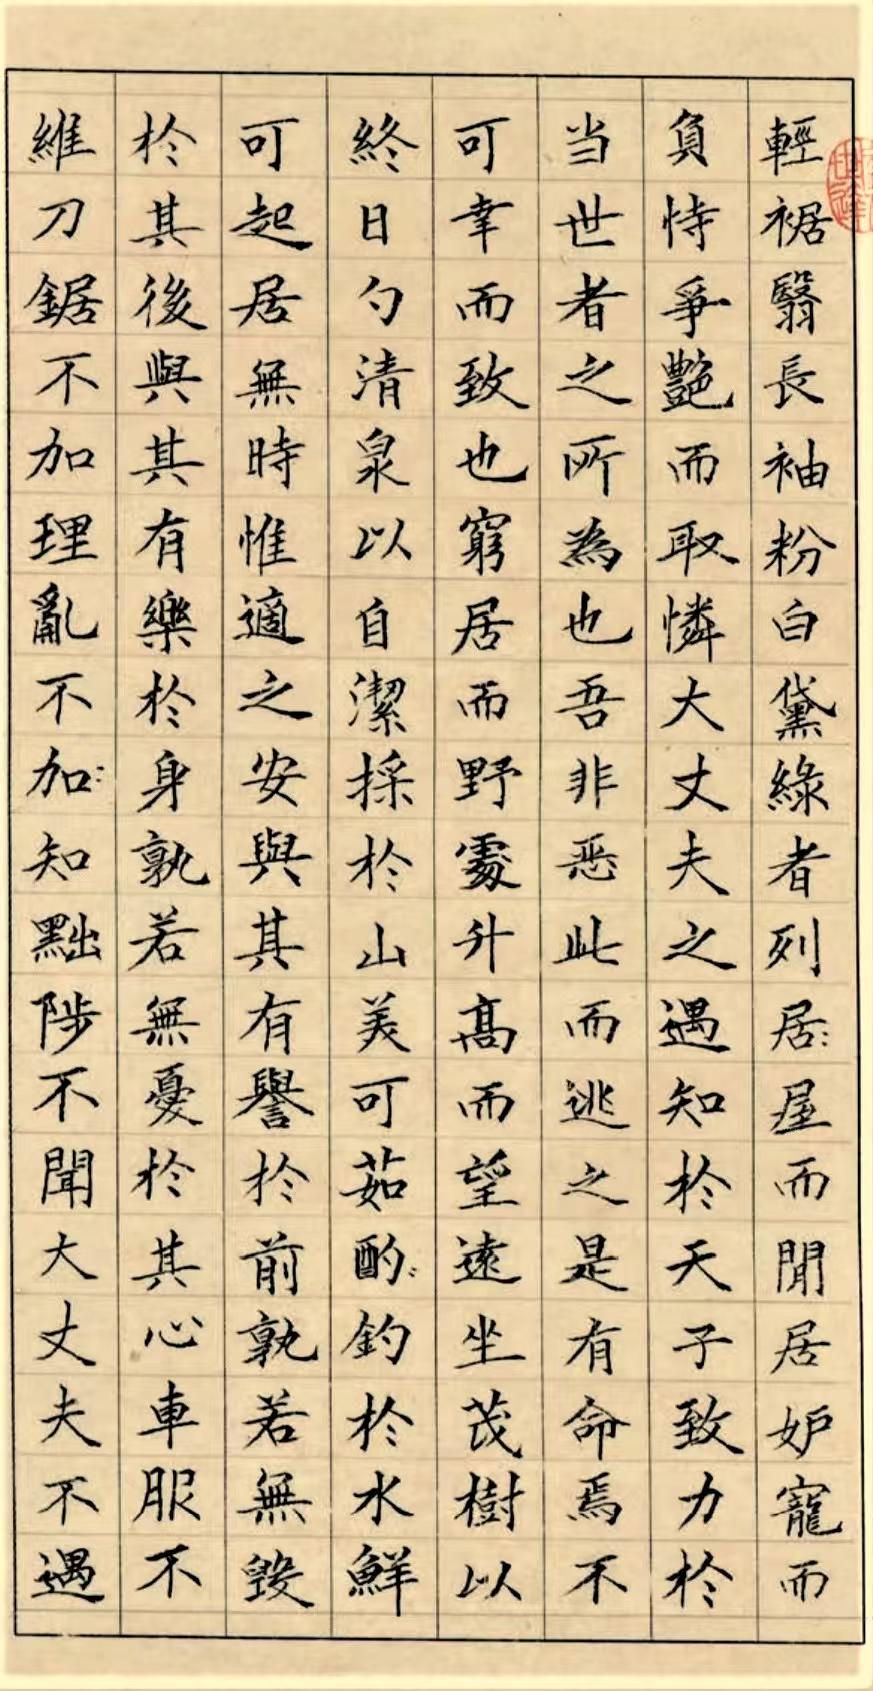 輕裾翳長袖粉白黛綠者列居:屋而閒居妒寵而
負恃爭艷而取憐大丈夫之遇知於天子致力於
当世者之所為也吾非惡此而逃之是有命焉不
可幸而致也窮居而野處升高而望遠坐茂樹以
終日勺清泉以自潔採於山美可茹酌:釣於水鮮
可起居無時惟適之安與其有譽於前孰若無毀
於其後與其有樂於身孰若無憂於其心車服不
維刀鋸不加理亂不加:知黜陟不聞大丈夫不遇